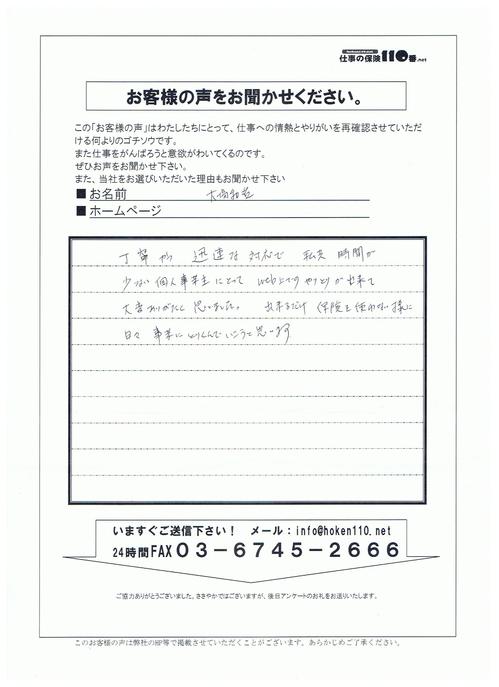 仕事の保険110番.net
お客様の声をお聞かせください。
この「お客様の声」はわたしたちにとって、仕事への情熱とやりがいを再確認させていただ
ける何よりのゴチソウです。
また仕事をがんばろうと意欲がわいてくるのです。
ぜひお声をお聞かせ下さい。
また、当社をお選びいただいた理由もお聞かせ下さい
■お名前
■ホームページ
丁寧かつ 迅速な対応で 時間が
少ない個人事業主にとって web上でのやりとりが出来て
大変ありがたく思いました。 出来るだけ 保険を使わない様に
日々 事業にとりくんでいこうと思います
いますぐご送信下さい！ メール：info@hoken110.net
24時間FAX 03-6745-2666
ご協力ありがとうございました。ささやかではございますが、後日アンケートのお礼をお送りいたします。
このお客様の声は弊社のHP等で掲載させていただくことがございます。あらかじめご了承ください。